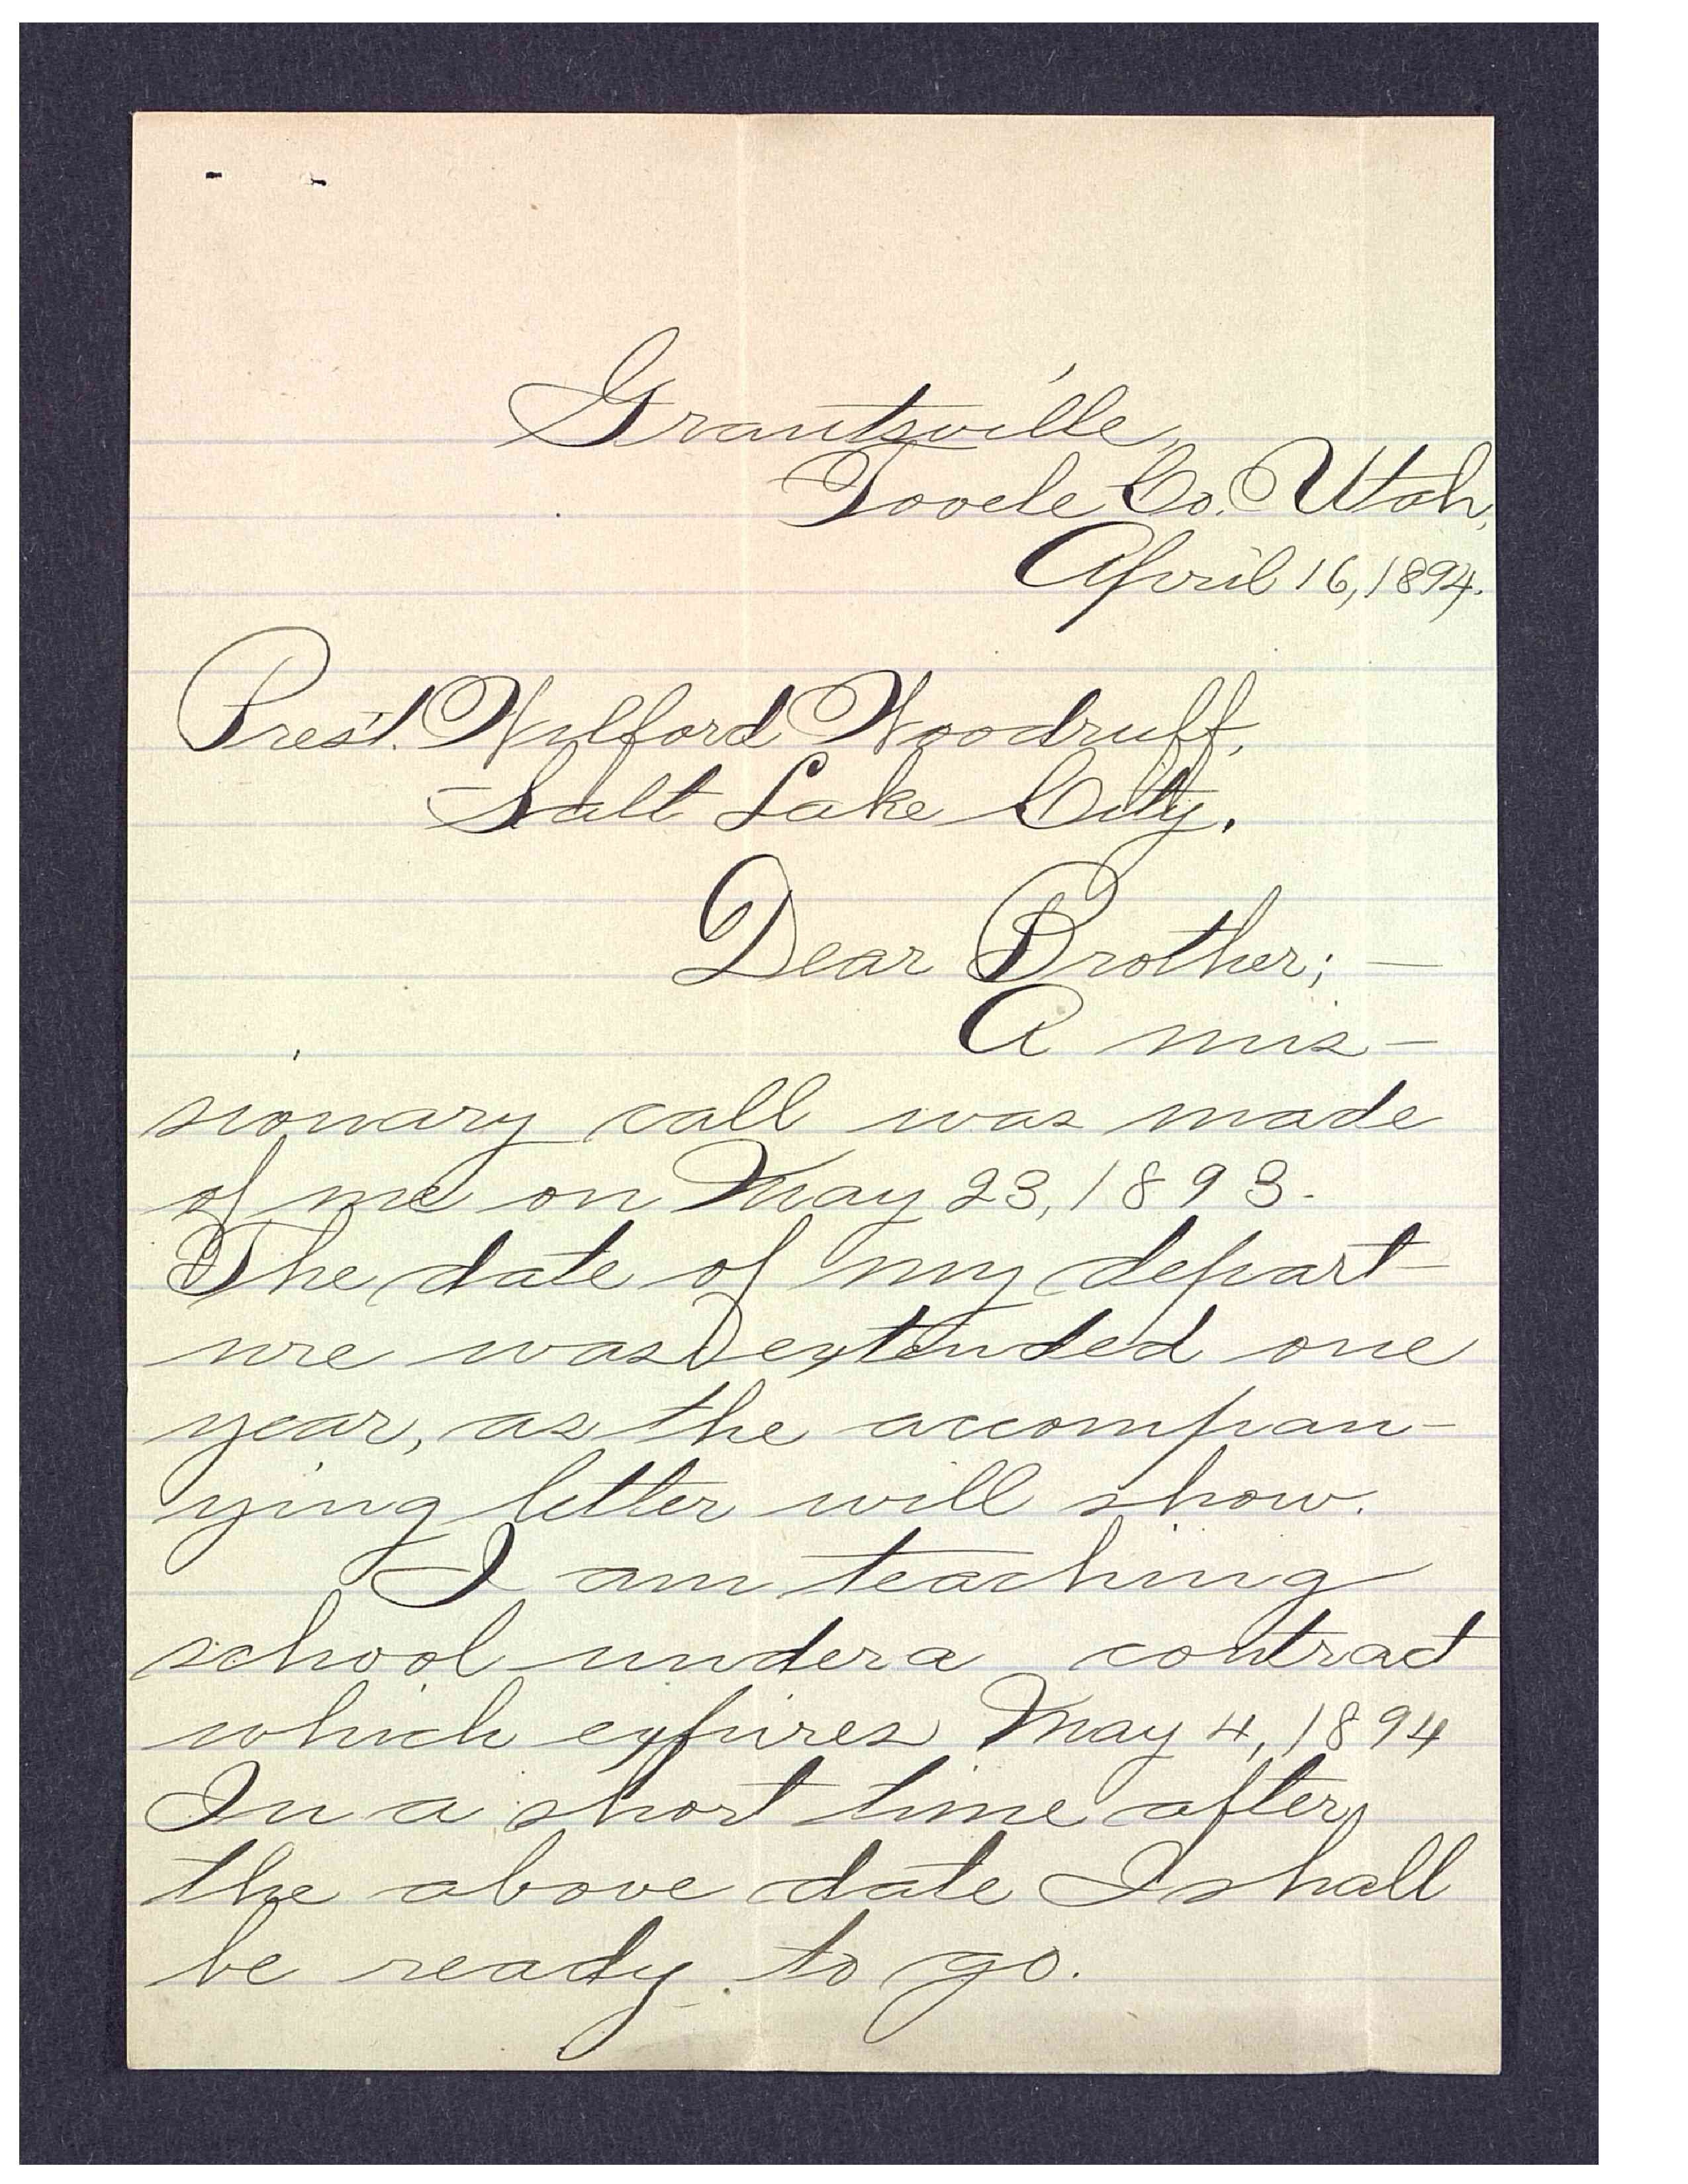 Grantsville,
Tooele Co. Utah,
April 16, 1894.
Prest. Wilford Woodruff,
Salt Lake City.
Dear Brother; —
A mis-
sionary call was made
of me on May 23, 1893.
The date of my depart-
ure was extended one
year, as the accompan-
ying letter will show.
I am teaching
school under a contract
which expires May 4, 1894
In a short time after
the above date I shall
be ready to go.